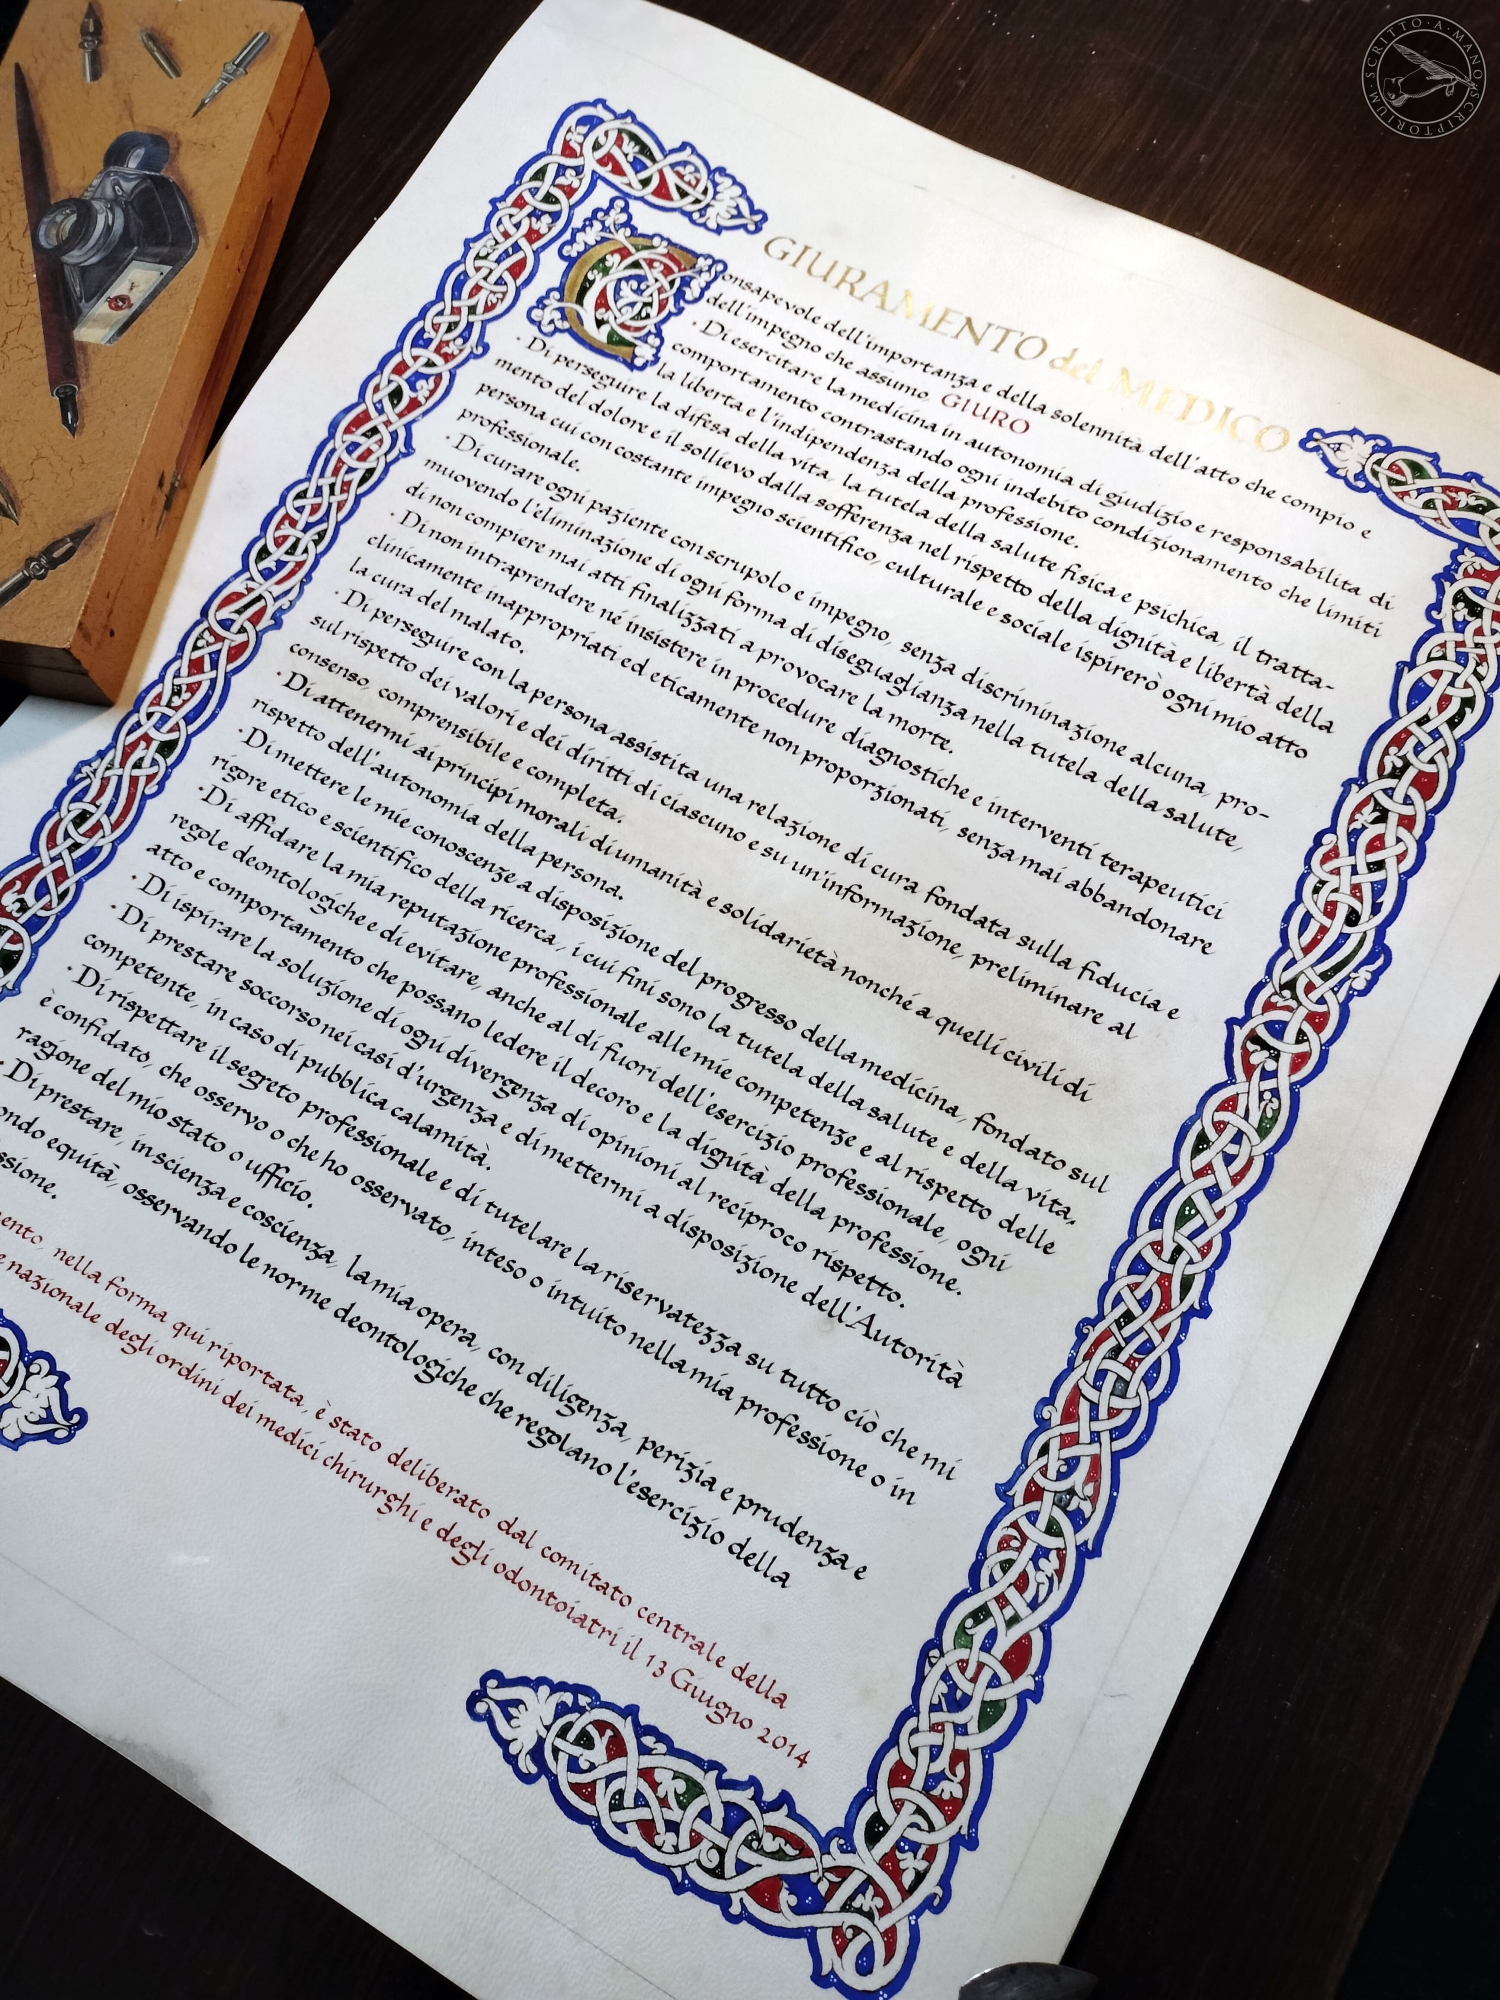 SCRITTO·A·MANO·SCRIPTORIUM
GIURAMENTO del MEDICO
Consapevole dell'importanza e della solennità dell'atto che compio e
dell'impegno che assumo, GIURO
· Di esercitare la medicina in autonomia di giudizio e responsabilità di
comportamento contrastando ogni indebito condizionamento che limiti
la libertà e l'indipendenza della professione.
· Di perseguire la difesa della vita, la tutela della salute fisica e psichica, il tratta-
mento del dolore e il sollievo dalla sofferenza nel rispetto della dignità e libertà della
persona cui con costante impegno scientifico, culturale e sociale ispirerò ogni mio atto
professionale.
· Di curare ogni paziente con scrupolo e impegno, senza discriminazione alcuna, pro-
muovendo l'eliminazione di ogni forma di diseguaglianza nella tutela della salute,
di non compiere mai atti finalizzati a provocare la morte.
· Di non intraprendere né insistere in procedure diagnostiche e interventi terapeutici
clinicamente inappropriati ed eticamente non proporzionati, senza mai abbandonare
la cura del malato.
· Di perseguire con la persona assistita una relazione di cura fondata sulla fiducia e
sul rispetto dei valori e dei diritti di ciascuno e su un'informazione, preliminare al
consenso, comprensibile e completa.
· Di attenermi ai principi morali di umanità e solidarietà nonché a quelli civili di
rispetto dell'autonomia della persona.
· Di mettere le mie conoscenze a disposizione del progresso della medicina, fondato sul
rigore etico e scientifico della ricerca, i cui fini sono la tutela della salute e della vita.
· Di affidare la mia reputazione professionale alle mie competenze e al rispetto delle
regole deontologiche e di evitare, anche al di fuori dell'esercizio professionale, ogni
atto e comportamento che possano ledere il decoro e la dignità della professione.
· Di ispirare la soluzione di ogni divergenza di opinioni al reciproco rispetto.
· Di prestare soccorso nei casi d'urgenza e di mettermi a disposizione dell'Autorità
competente, in caso di pubblica calamità.
· Di rispettare il segreto professionale e di tutelare la riservatezza su tutto ciò che mi
è confidato, che osservo o che ho osservato, inteso o intuito nella mia professione o in
ragione del mio stato o ufficio.
· Di prestare, in scienza e coscienza, la mia opera, con diligenza, perizia e prudenza e
ondo equità, osservando le norme deontologiche che regolano l'esercizio della
ssione.
ento, nella forma qui riportata, è stato deliberato dal comitato centrale della
e nazionale degli ordini dei medici chirurghi e degli odontoiatri il 13 Giugno 2014